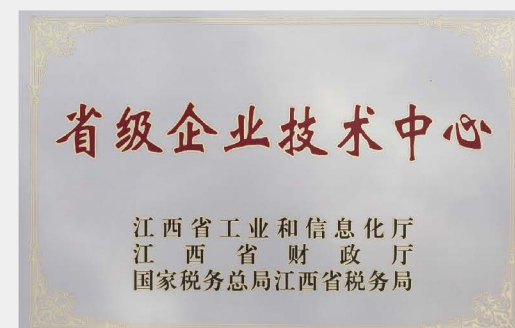 省级企业技术中心
江西省工业和信息化厅
江西省财政厅
国家税务总局江西省税务局